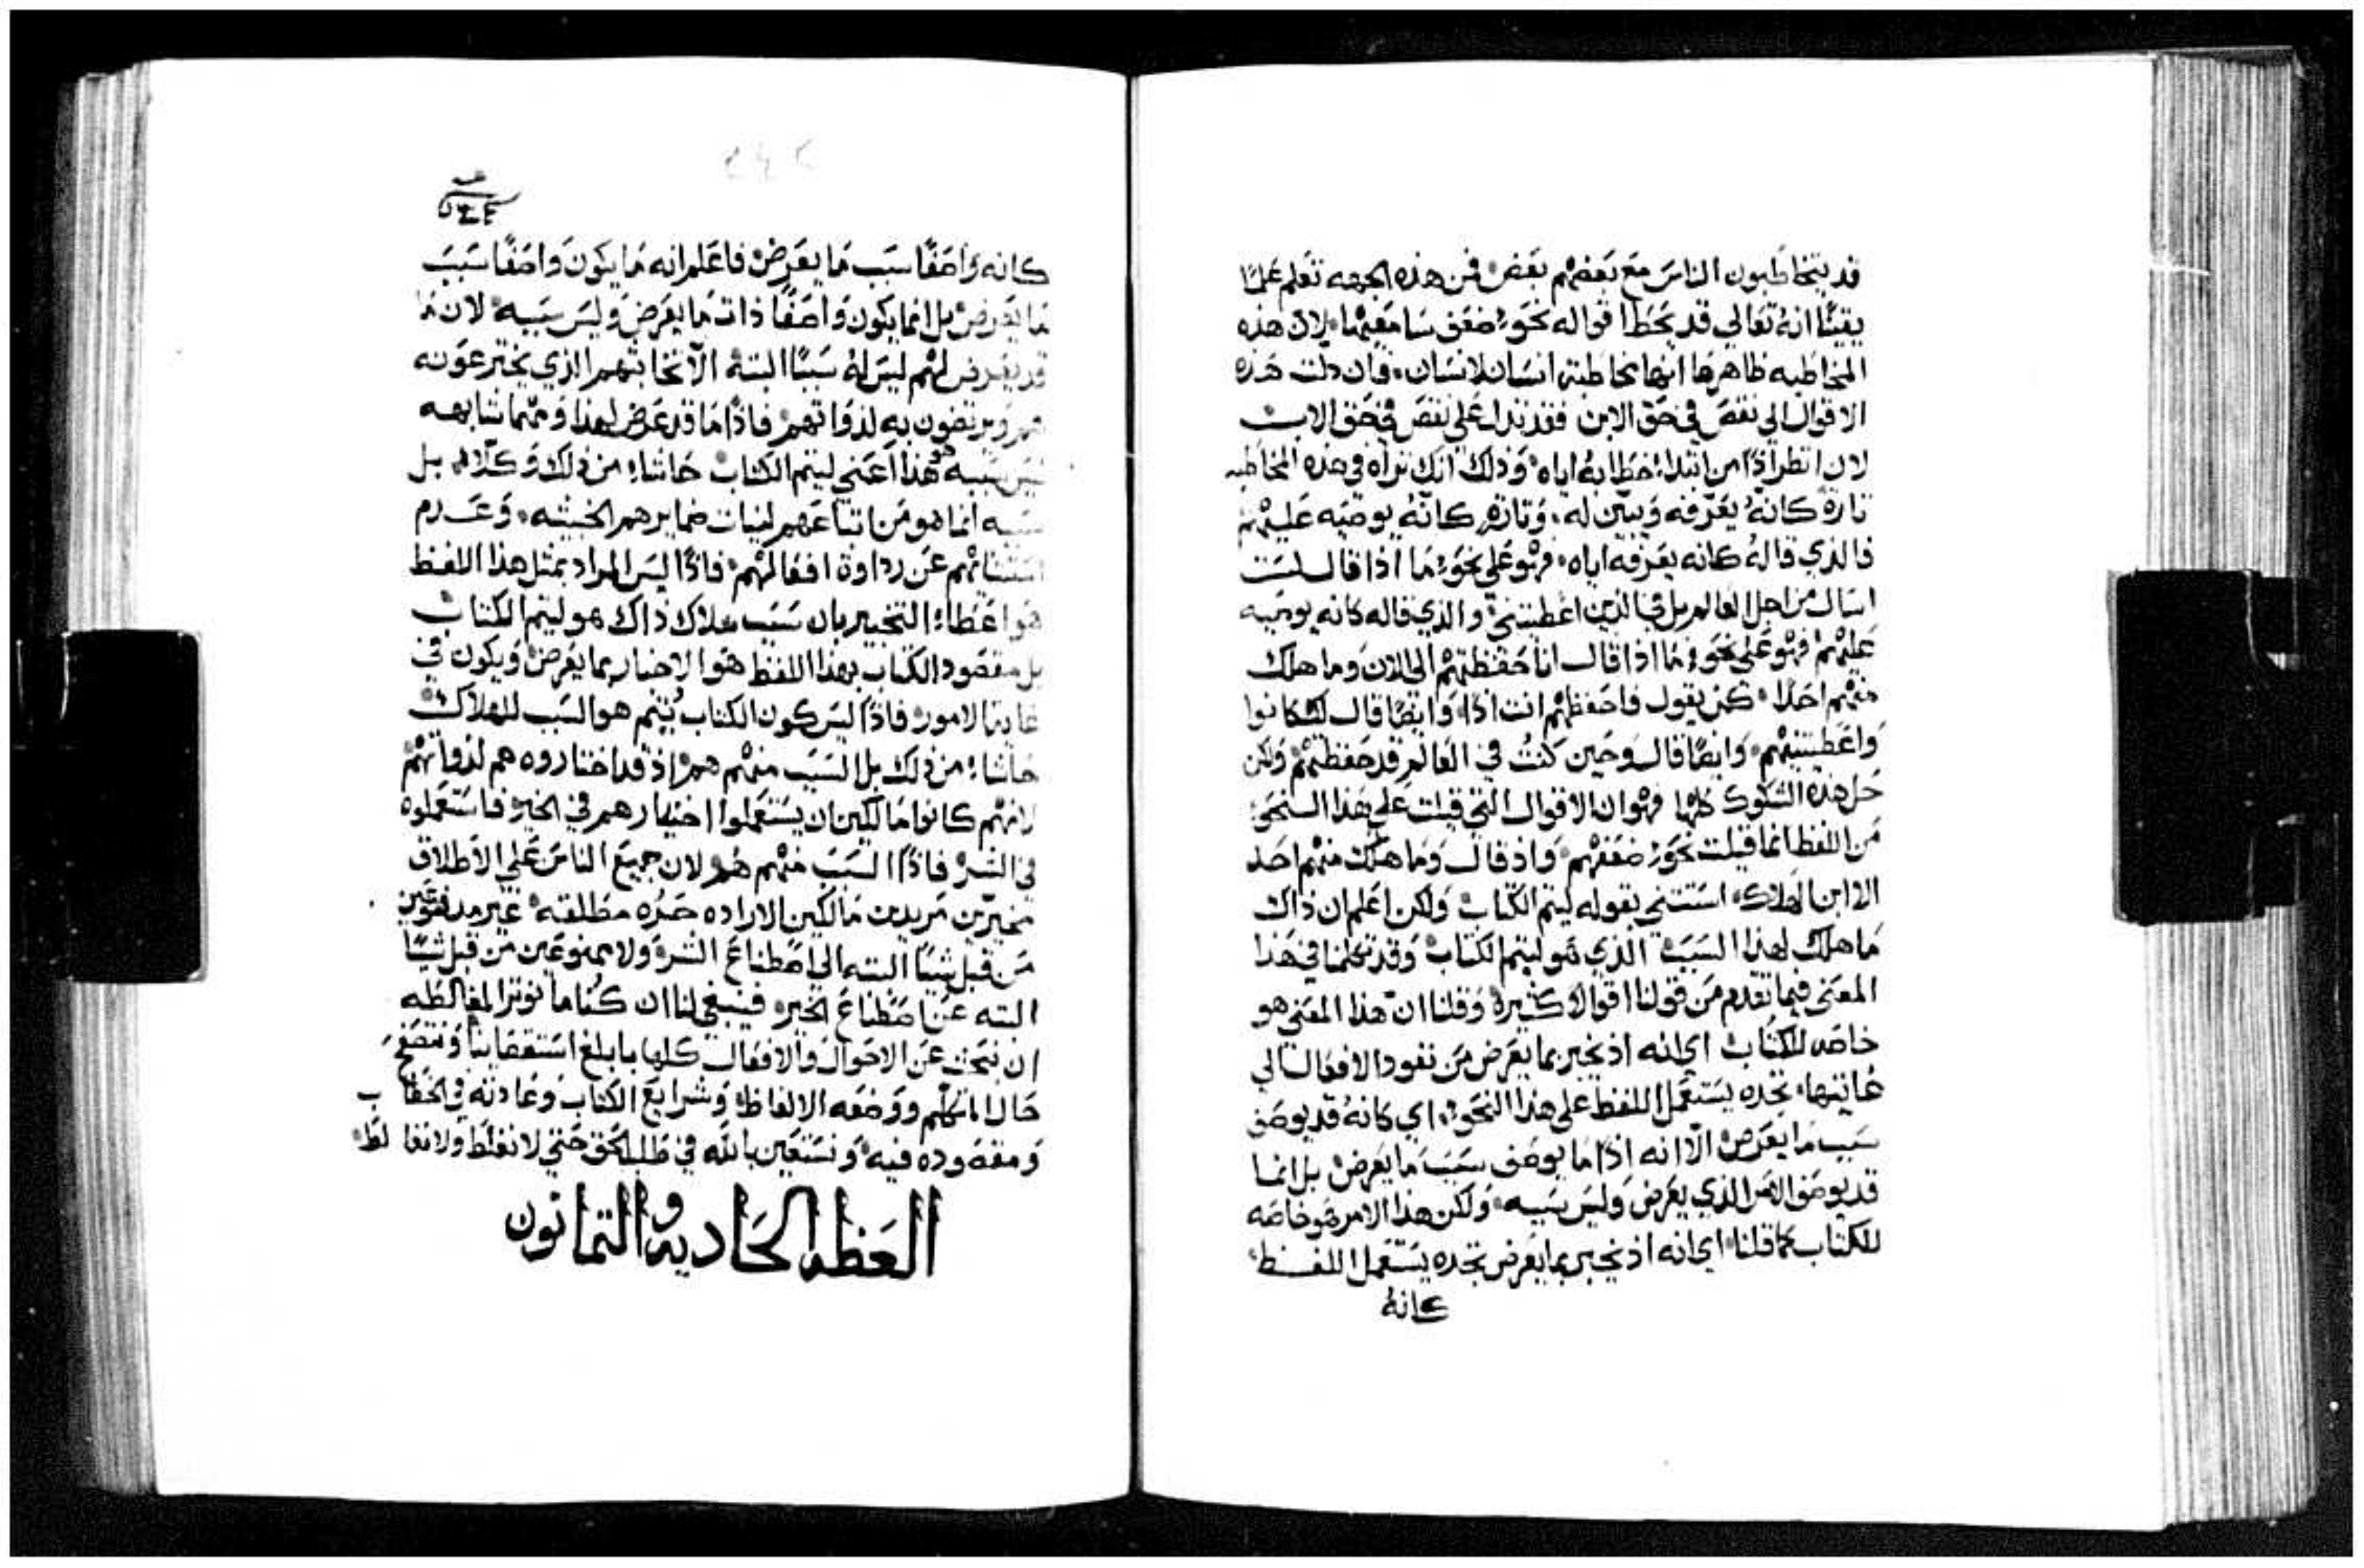 قد يتخاطبون الناس مع بعضهم بعض فمن هذه الجهه تعلم علمًا
يقينًا انهُ تعالي قد يحط اقواله نحو ضعف سامعيها لان هذه
المخاطبه ظاهرها انها مخاطبة انسان لانسان فان دلت هذه
الاقوال الي نقص في حق الابن فقد تدل علي نقص في حق الاب
لان انظر اذًا من ابتداء خطابهُ اياه وذلك انك تراه في هذه المخاطبه
تارةً كانهُ يعرّفه ويبيّن له وتارةً كانهُ يوصيه عليهم
فالذي قالهُ كانه يعرفه اياه فهو علي نحو ما اذا قال لست
اسال من اجل العالم بل في الذين اعطيتني والذي قاله كانه يوصيه
عليهم فهو علي نحو ما اذا قال انا حفظتهم الي الان وما هلك
منهم احدًا كمن يقول فاحفظهم انت اذًا وايضًا قال لك كانوا
واعطيتنيهم وايضًا قال وحين كنتُ في العالم قد حفظتهم ولكن
حل هذه الشكوك كلها فهو ان الاقوال التي قيلت علي هذا النحو
من اللفظ انما قيلت نحو ضعفهم واذ قال وما هلك منهم احد
الا ابن الهلاك استثني بقوله ليتم الكتاب ولكن اعلم ان ذاك
ما هلك لهذا السبب الذي هو ليتم الكتاب وقد تكلمنا في هذا
المعني فيما تقدم من قولنا اقوالاً كثيرة وقلنا انّ هذا المعني هو
خاصه للكتاب اي انه اذ يخبر بما يعرض من نفود الافعال الي
غايتها تجده يستعمل اللفظ علي هذا النحو اي كانهُ قد يوصف
سبب ما يعرض الّا انه اذًا ما يوصف سبب ما يعرض بل انما
قد يوصف الامر الذي يعرض وليس سببه ولكن هذا الامر هو خاصه
للكتاب كما قلنا اي انه اذ يخبر بما يعرض تجده يستعمل اللفظ
كانهُ
كانه واصفًا سبب ما يعرض فاعلم انه ما يكون واصفًا سبب
ما يعرض بل انما يكون واصفًا ذات ما يعرض وليس سببه لان ما
قد يعرض لهم ليس لهُ سببًا البتة الا انتخابهم الذي يخترعونه
هم ويرتضون به لذواتهم فاذًا ما قد عرض لهذا وممّا شابهه
ليس سببه هو هذا اعني ليتم الكتاب حاشاء من ذلك وكلّا بل
سببه انما هو من اتباعهم لنيات ضمايرهم الخبيثه وعدم
انتنائهم عن رداوة افعالهم فاذًا ليس المراد بمثل هذا اللفظ
هو اعطاء التخبير بان سبب هلاك ذاك هو ليتم الكتاب
بل مقصود الكتاب بهذا اللفظ هو الاخبار بما يعرض ويكون في
غاية الامور فاذًا ليس كون الكتاب يُتم هو السبب للهلاك
حاشاء من ذلك بل السبب منهم هم اذ قد اختاروه هم لذواتهم
لانهم كانوا مالكين ان يستعملوا اختيارهم في الخير فاستعملوه
في الشر فاذًا السبب منهم هُم لان جميع الناس علي الاطلاق
مخيّرين مريدين مالكين الاراده حره مطلقه غير مدفوعين
من قبل شيًا البته الي اصطناع الشر ولا ممنوعين من قبل شيًا
البته عن اصطناع الخير فينبغي لنا ان كُنا ما نوثر المغالطه
ان نبحث عن الاحوال والافعال كلها بابلغ استقصاينا ونتصفح
حال المتكلم ووضعه الالفاظ وشرايع الكتاب وعادته في الخطاب
ومقصوده فيه ونستعين بالله في طلب الحق حتي لا نغلط ولا نغالط
العظه الحاديه والثمانون